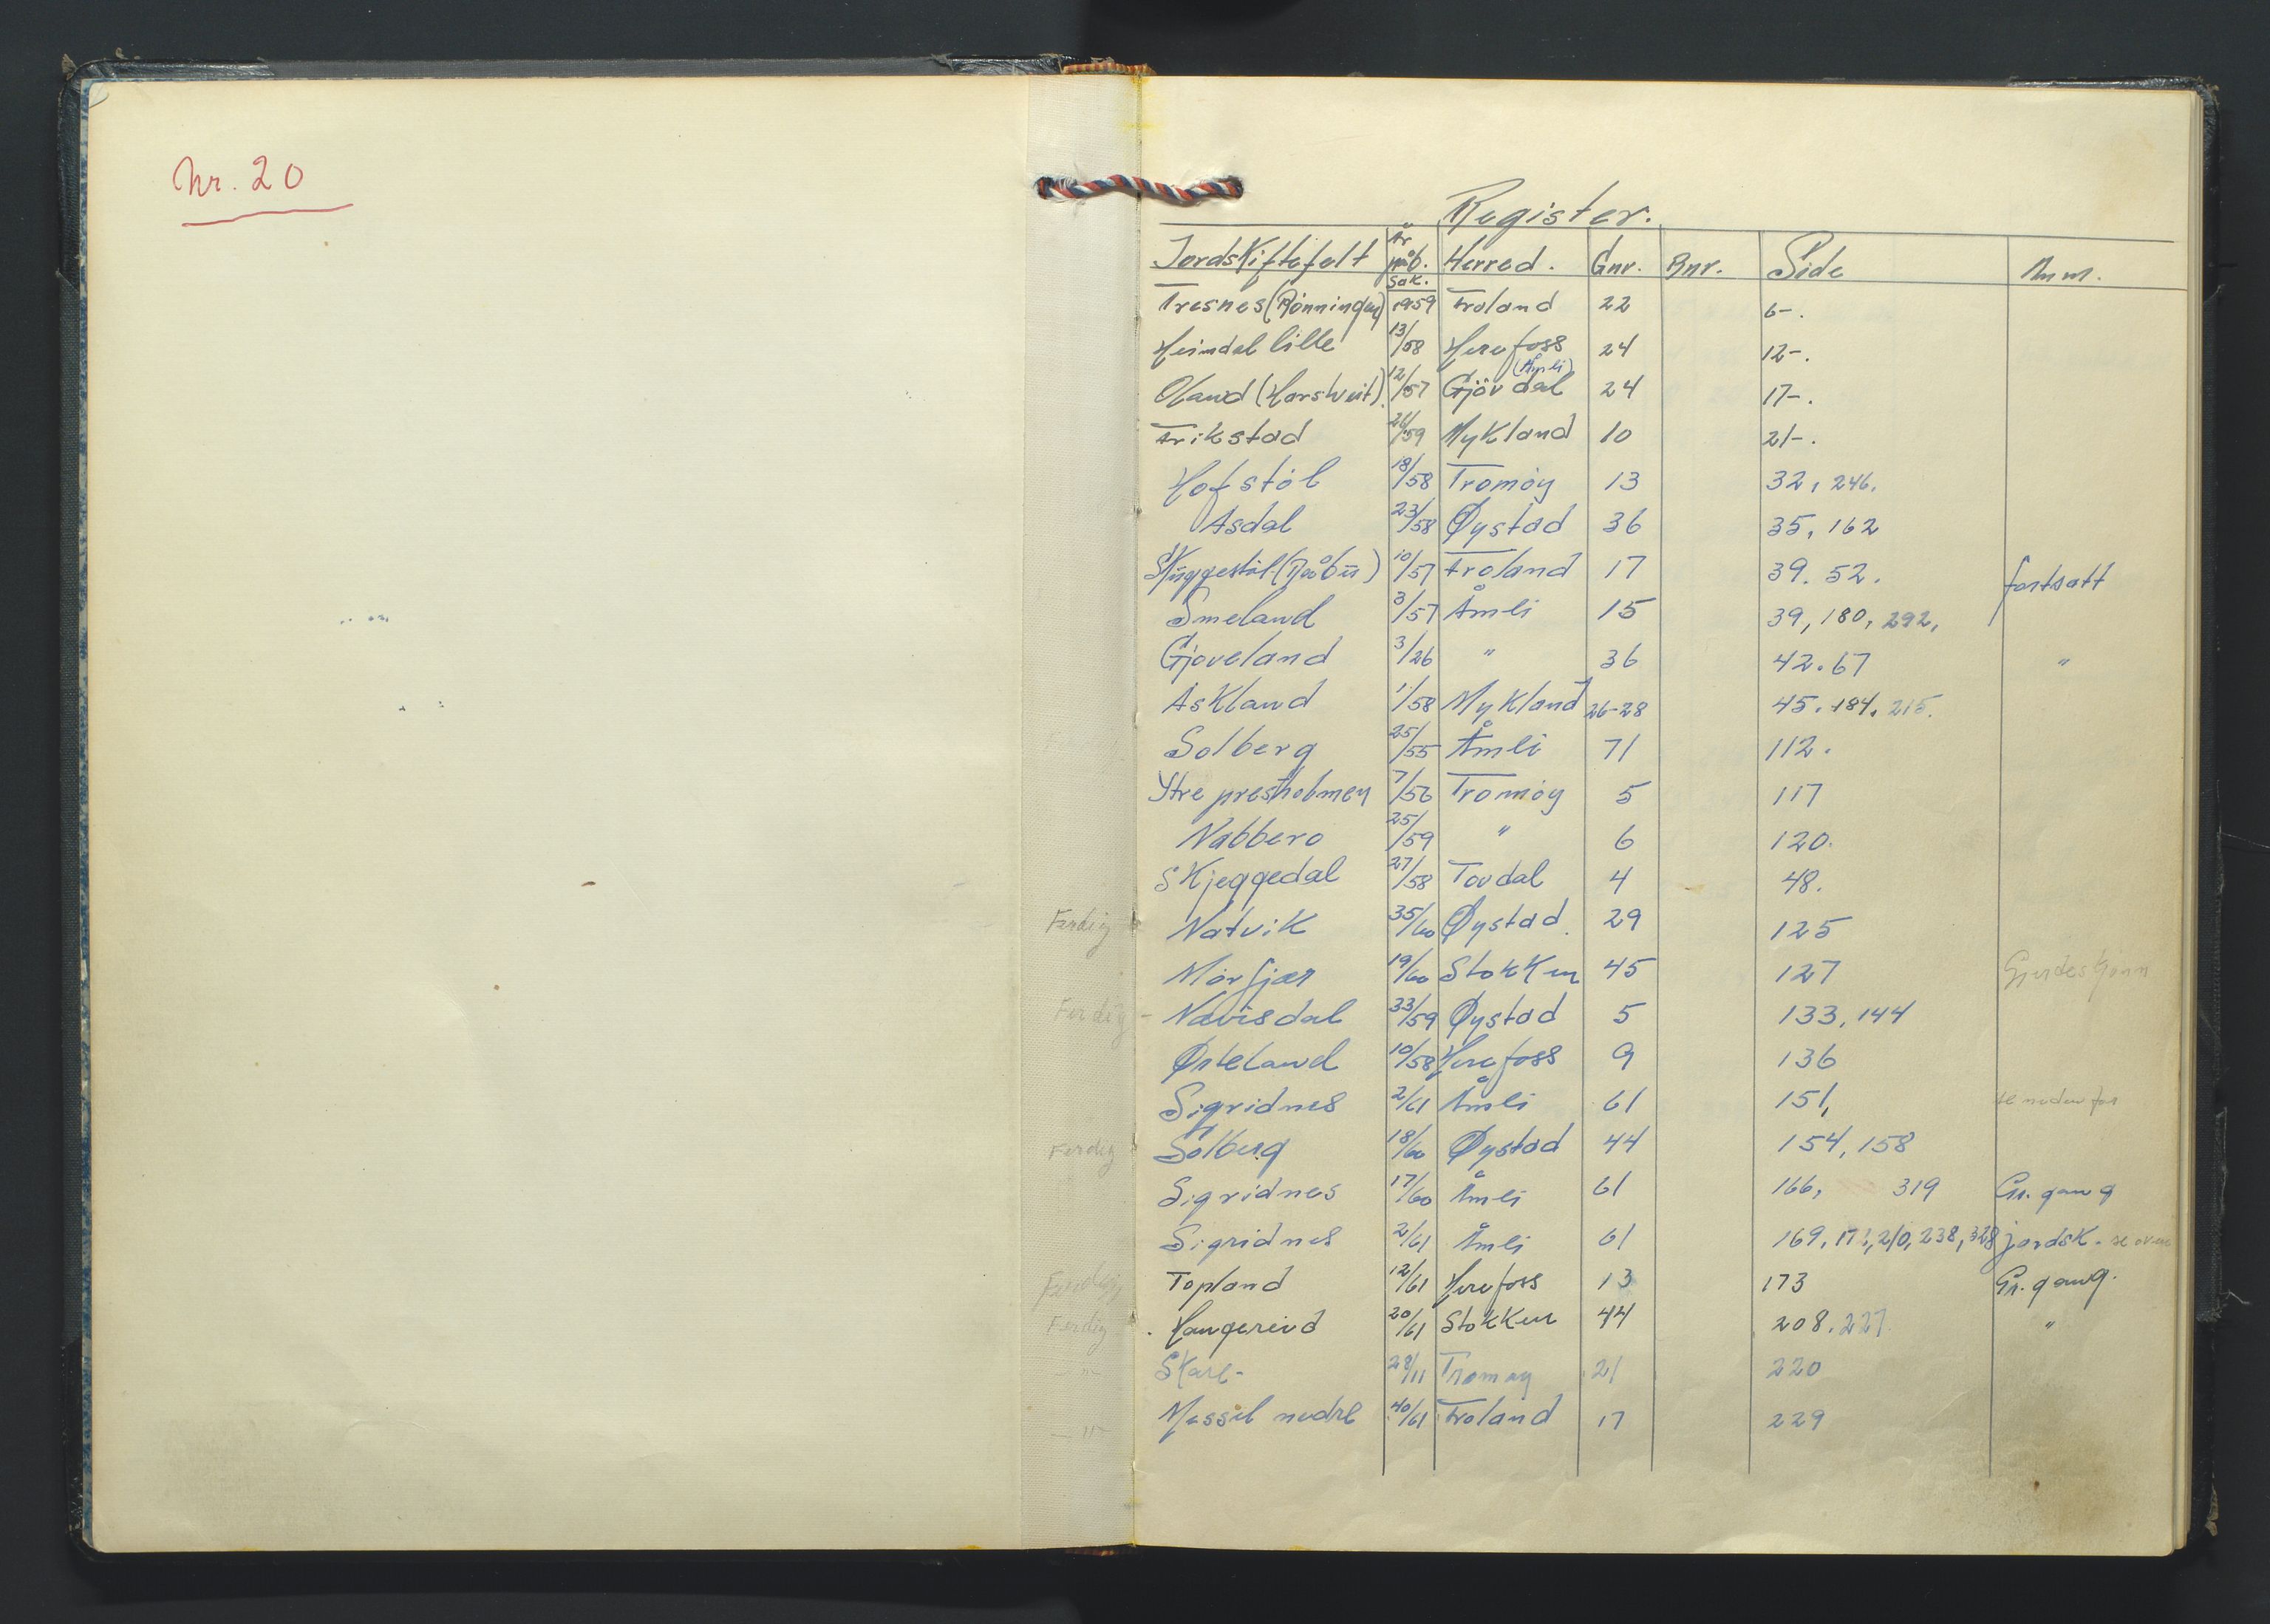 Nr. 20
Register.
Jordskiftefelt År påb. sak. Herred. Gnr. Bnr. Side Anm.
Tresnes (Rönningen) 1959 Froland 22 6-.
Heimdal lille 13/58 Herefoss 24 12-.
Oland (Harstveit) 12/57 Gjövdal (Åmli) 24 17-.
Frikstad 26/59 Mykland 10 21-.
Hofstöl 18/58 Tromöy 13 32, 246.
Asdal 23/58 Øystad 36 35, 162
Skuggestöl (Bøbu) 10/57 Froland 17 39. 52. fortsatt
Smeland 3/57 Åmli 15 39, 180, 292,
Gjoveland 3/26 " 36 42. 67 "
Askland 1/58 Mykland 26-28 45. 184. 215.
Solberg 25/55 Åmli 71 112.
Ytre prestholmen 7/56 Tromöy 5 117
Nabbero 25/59 " 6 120.
Skjeggedal 27/58 Tovdal 4 48.
Ferdig Natvik 35/60 Øystad. 29 125
Mörfjær 19/60 Stokken 45 127 Gjerdeskjönn
Ferdig - Navisdal 33/59 Øystad 5 133, 144
Østeland 10/58 Herefoss 9 136
Sigridnes 2/61 Åmli 61 151, se nedenfor
Ferdig Solberg 18/60 Øystad 44 154, 158
Sigridnes 17/60 Åmli 61 166, 319 Gr. gang
Sigridnes 2/61 Åmli 61 169, 172, 210, 238, 328 jordsk. se oven
Ferdig Topland 12/61 Herefoss 13 173 Gr. gang.
Ferdig . Haugereid 20/61 Stokken 44 208. 227 "
-"- Skare- 28/11 Tromøy 21 220
-"- Messel nedre 40/61 Froland 17 229